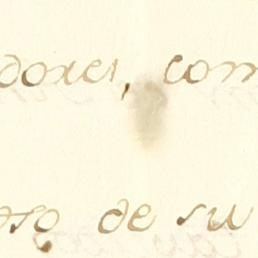 dores, com
oso de su